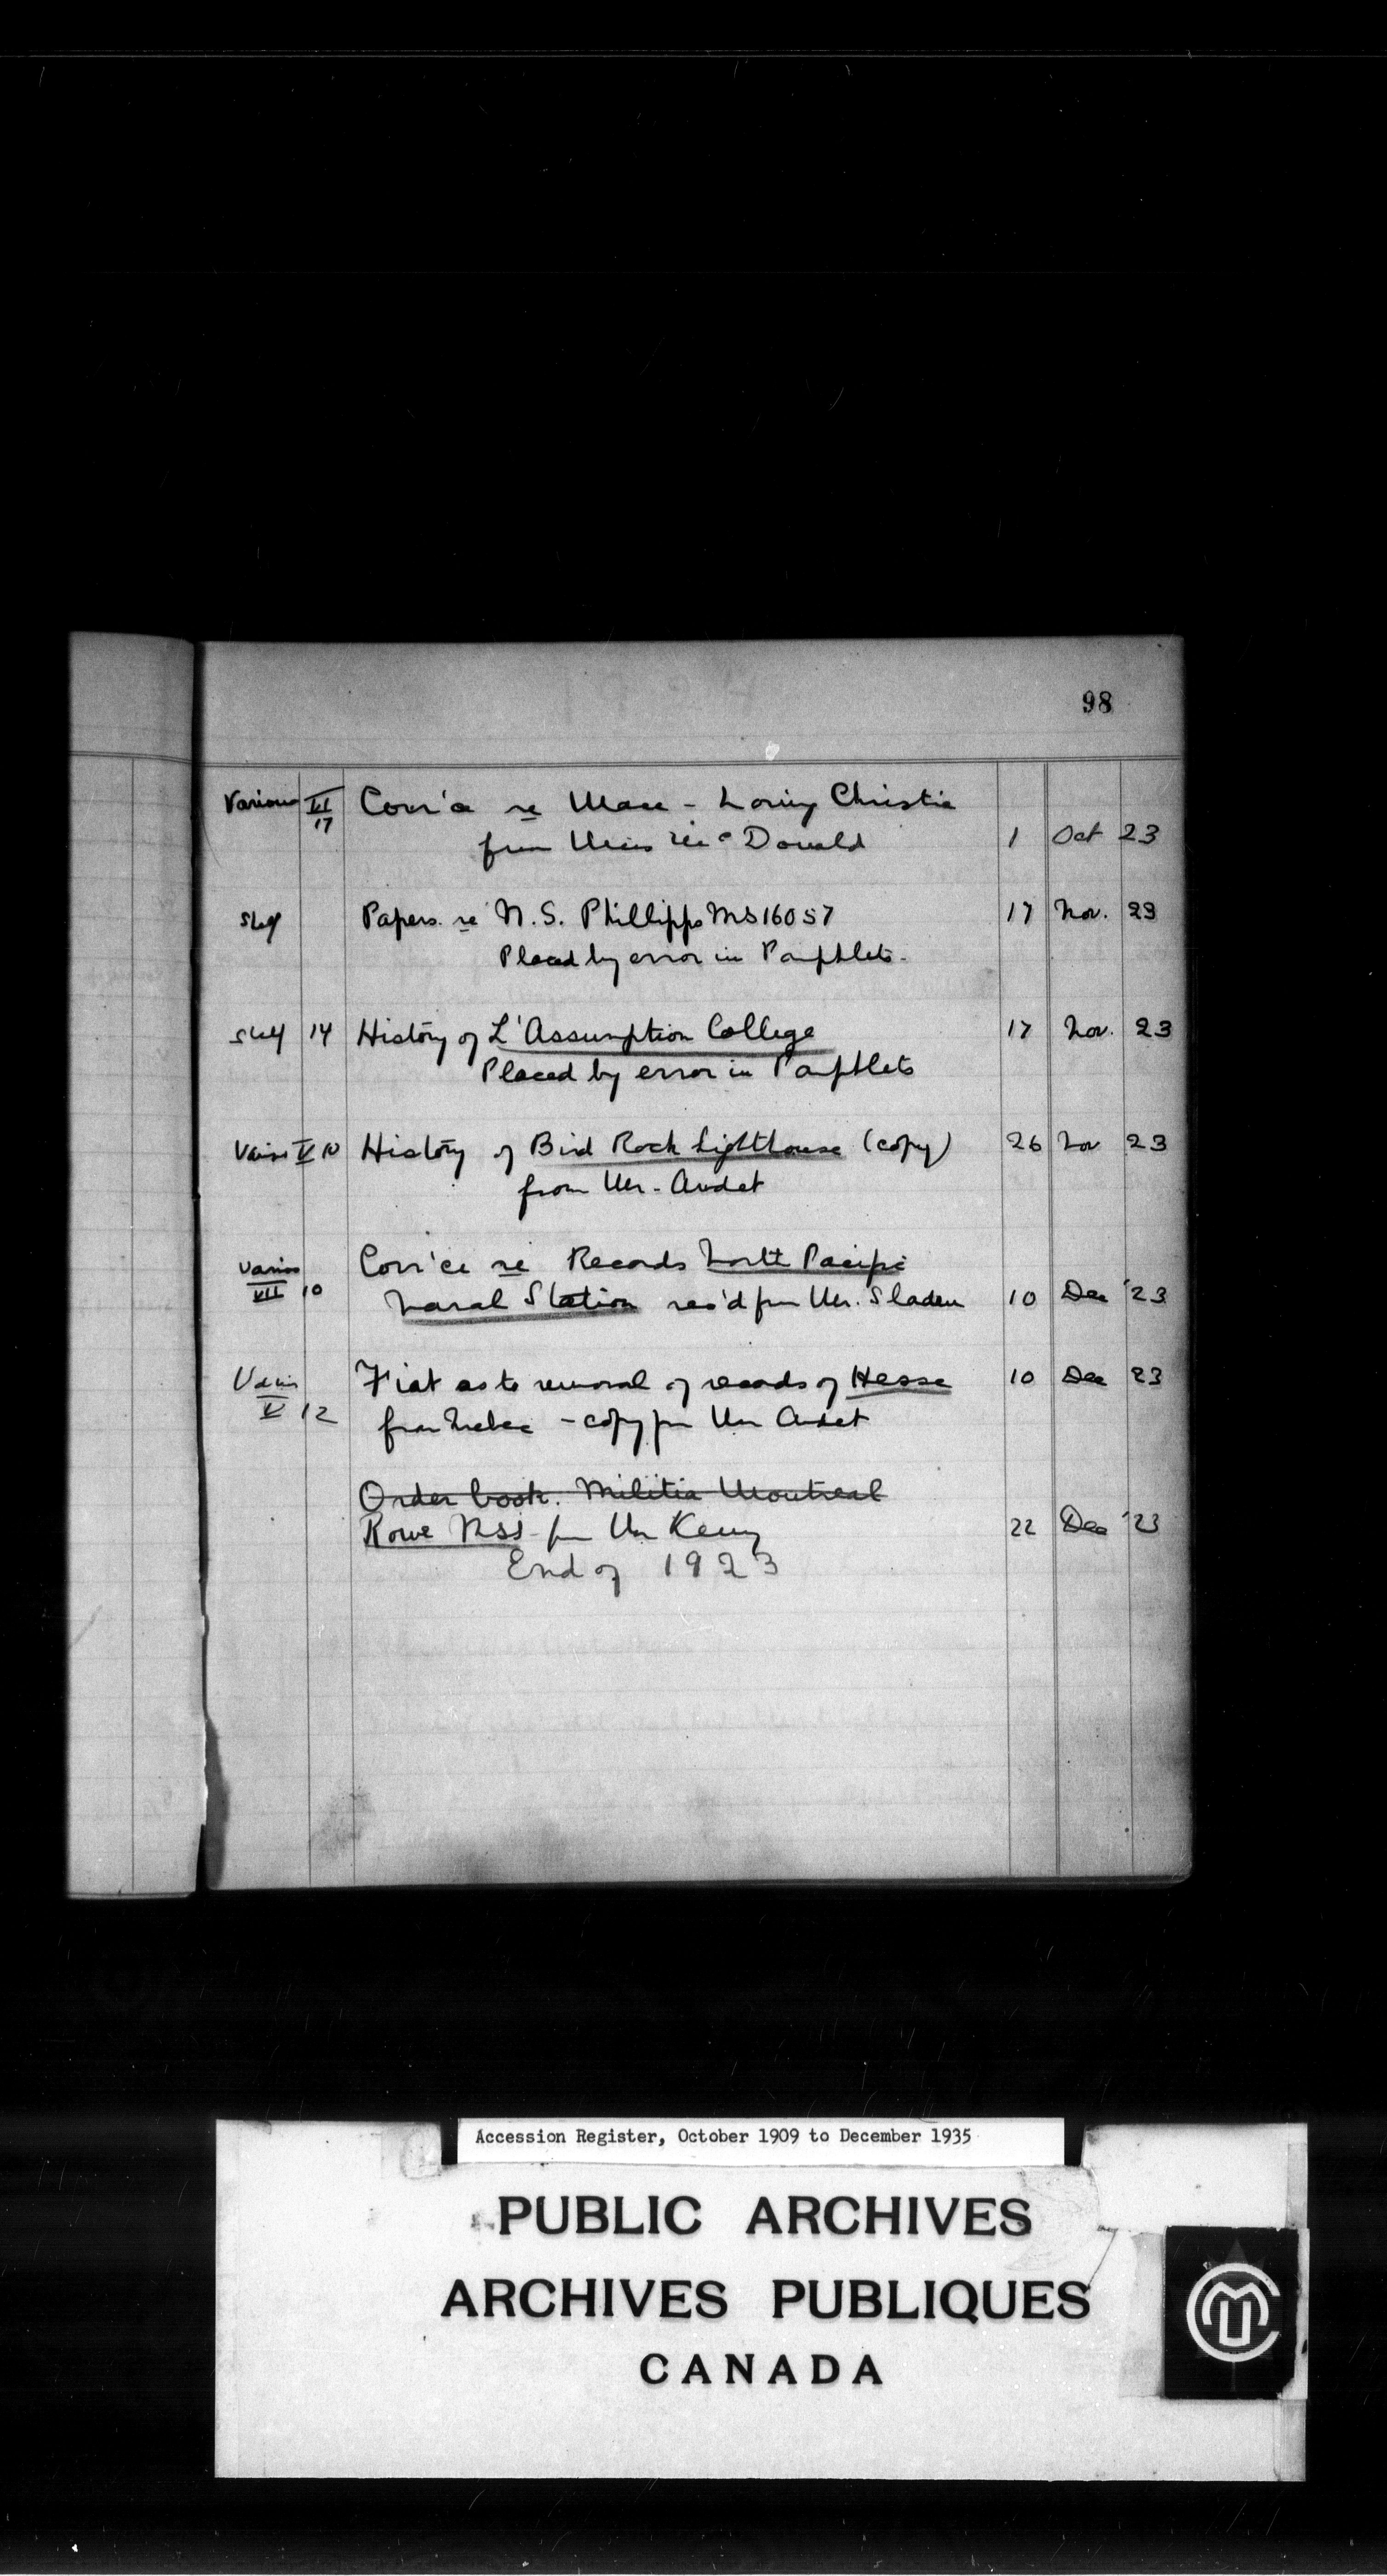 98
Various VI 17 Corr'ce re Mace - Loring Christie
from Miss McDonald 1 Oct 23
Shelf Papers re N. S. Phillipps MS 16057 17 Nov. 23
Placed by error in Pamphlets.
Shelf 14 History of L'Assumption College 17 Nov. 23
Placed by error in Pamphlets
V 10 History of Bird Rock Lighthouse (copy) 26 Nov 23
from Mr. Audet
Various Corr'ce re Records North Pacific
VII 10 Naval Station rec'd from Mr. Sladen 10 Dec '23
Fiat as to removal of records of Hesse 10 Dec 23
V 12 from Quebec - copy from Mr Audet
Order book. Militia Montreal
Rowe MSS from Mr Kenny 22 Dec '23
End of 1923
Accession Register, October 1909 to December 1935
PUBLIC ARCHIVES
ARCHIVES PUBLIQUES
CANADA